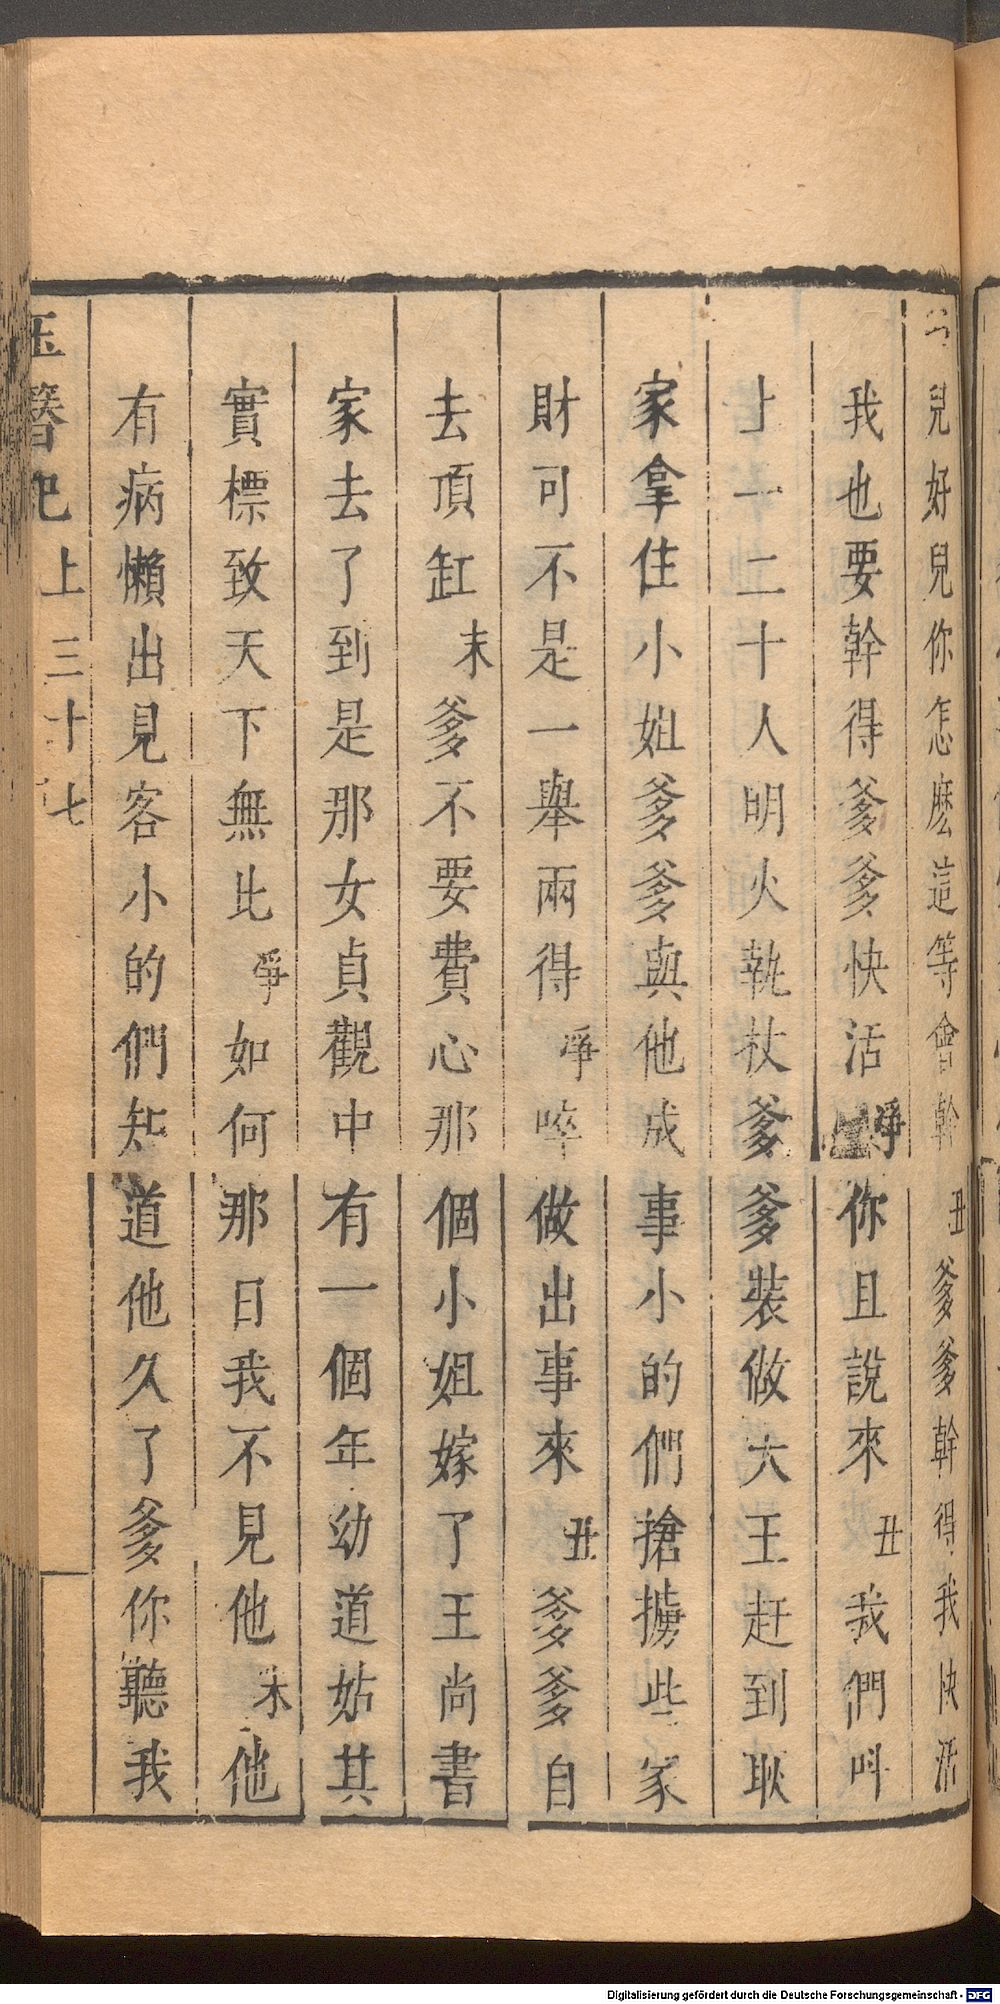 兒好兒你怎麽這等會幹丑爹爹幹得我快活
我也要幹得爹爹快活淨你且說來丑我們叫
上一二十人明火執杖爹爹裝做大王赶到耿
家拿住小姐爹爹與他成事小的們搶擄些家
財可不是一舉兩得淨啐做出事來丑爹爹自
去頂缸末爹不要費心那個小姐嫁了王尚書
家去了到是那女貞觀中有一個年幼道姑其
實標致天下無比淨如何那日我不見他末他
有病懶出見客小的們知道他久了爹你聽我
玉簪記 上 三十七
Digitalisierung gefördert durch die Deutsche Forschungsgemeinschaft - DFG